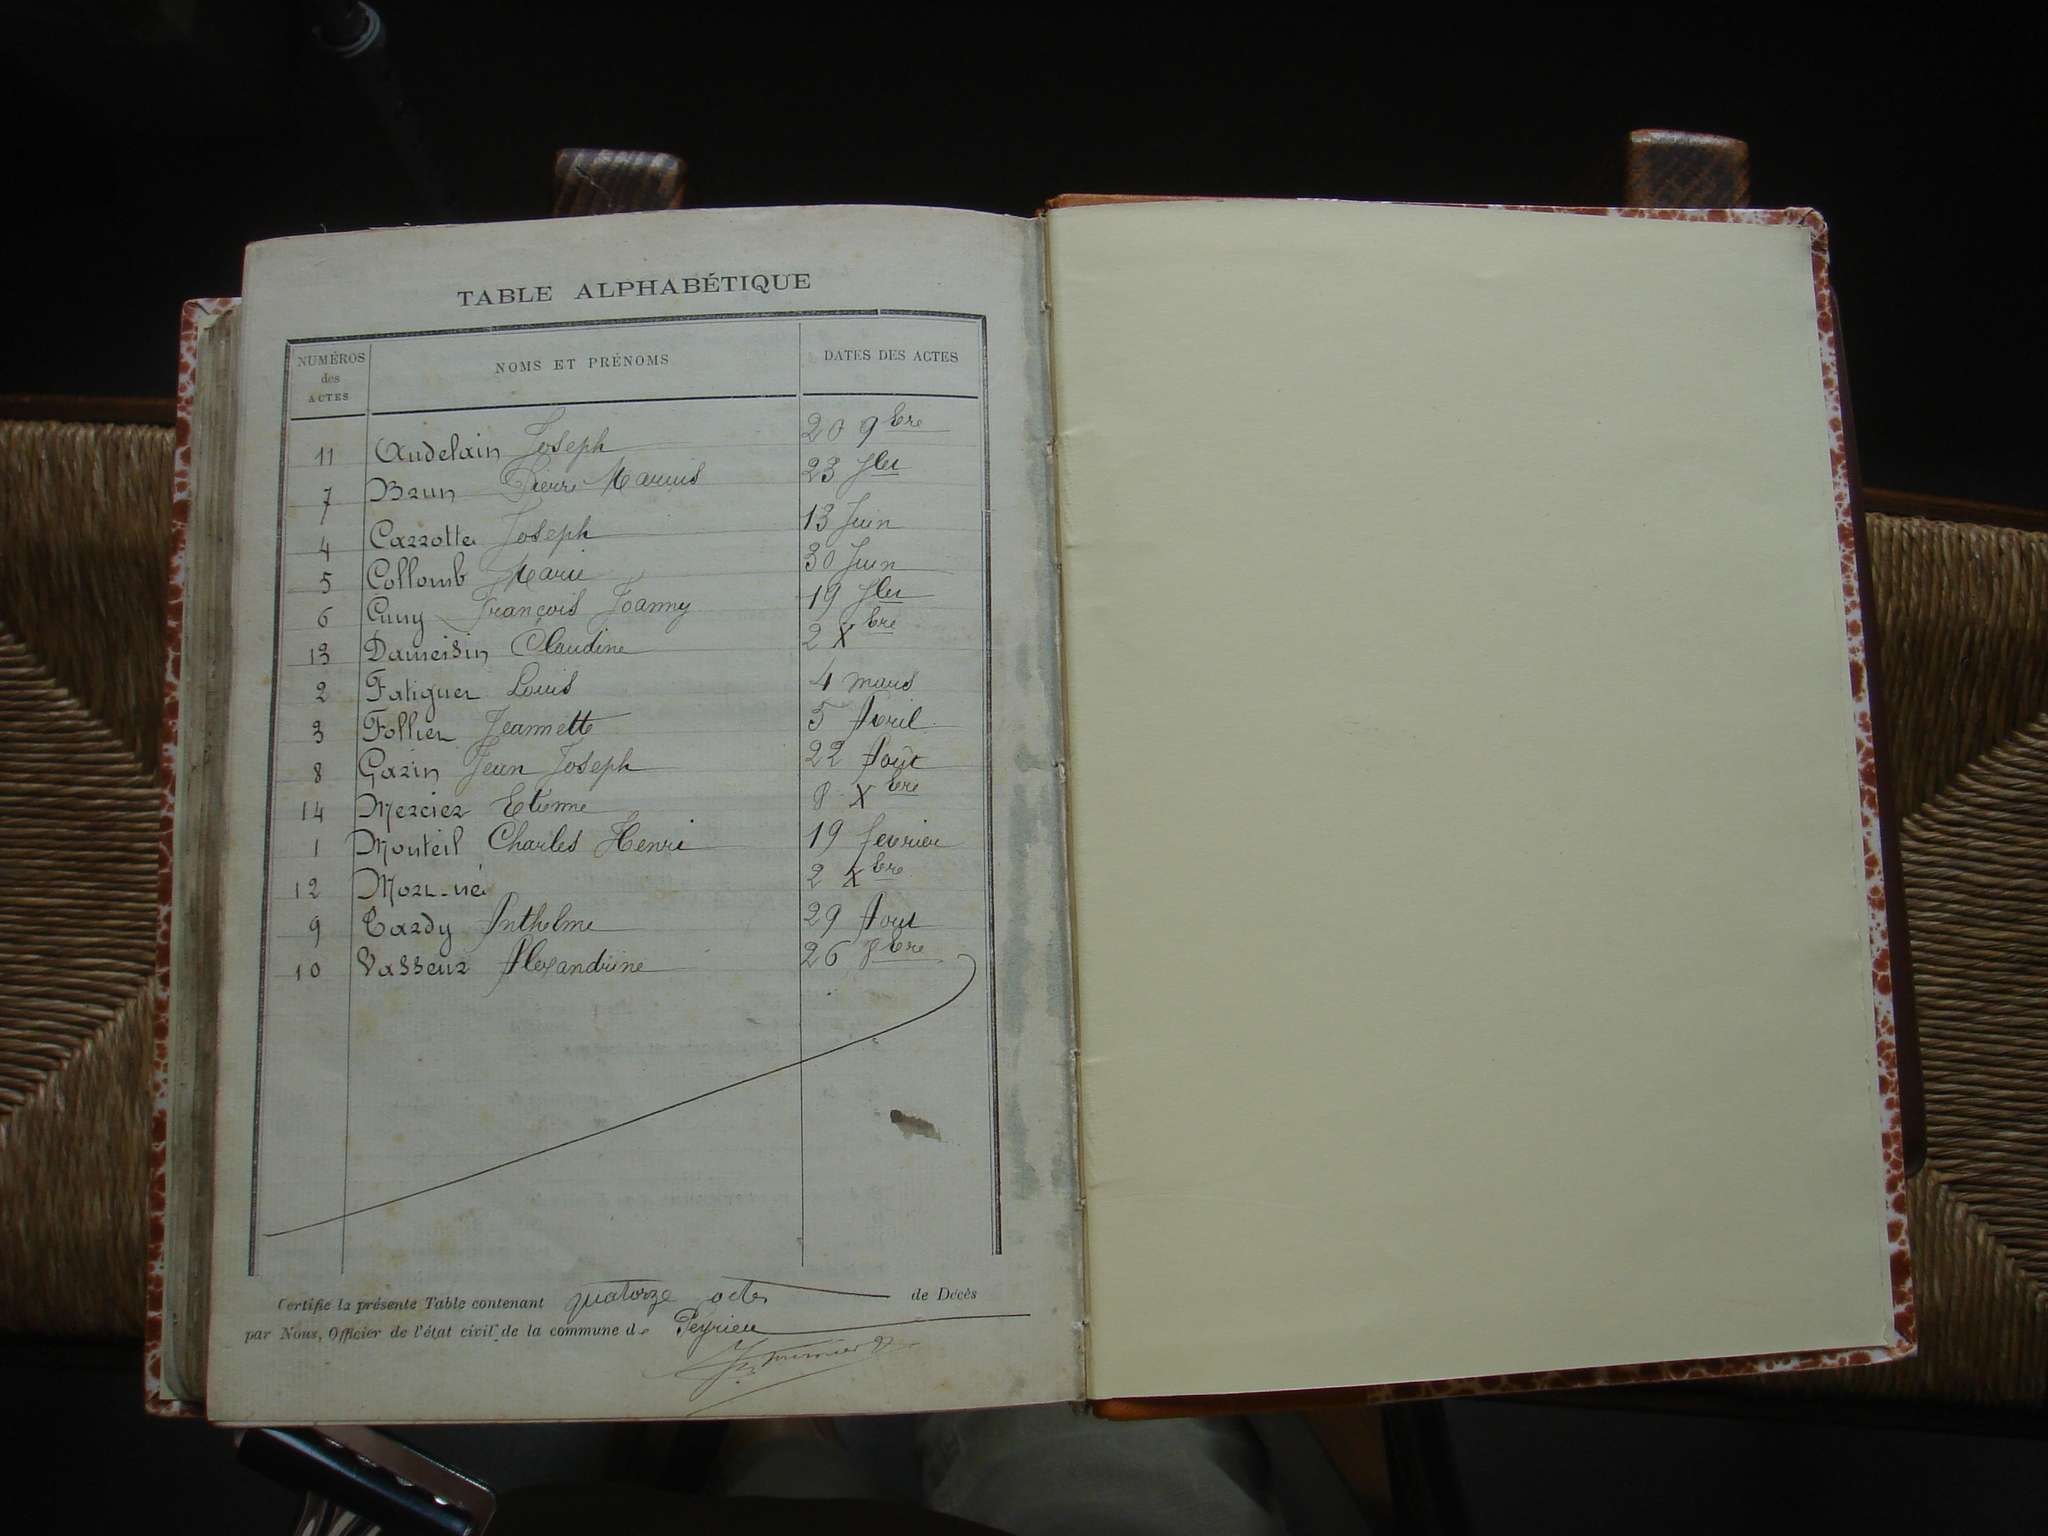 TABLE ALPHABÉTIQUE
NUMÉROS des ACTES NOMS ET PRÉNOMS DATES DES ACTES
11 Audelain Joseph 20 9bre
7 Brun Pierre Marius 23 Jlet
4 Cazzotte Joseph 13 Juin
5 Collomb Marie 30 Juin
6 Cuny François Joanny 19 Jlet
13 Dameisin Claudine 2 Xbre
2 Fatiguer Louis 4 mars
3 Follier Jeannette 5 Avril
8 Gazin Jean Joseph 22 Août
14 Mercier Etienne 8 Xbre
1 Monteil Charles Henri 19 fevrier
12 Mort-né 2 Xbre
9 Tardy Anthelme 29 Aout
10 Vasseur Alexandrine 26 bre
Certifie la présente Table contenant quatorze actes de Décès
par Nous, Officier de l'état civil de la commune de Peyrieu